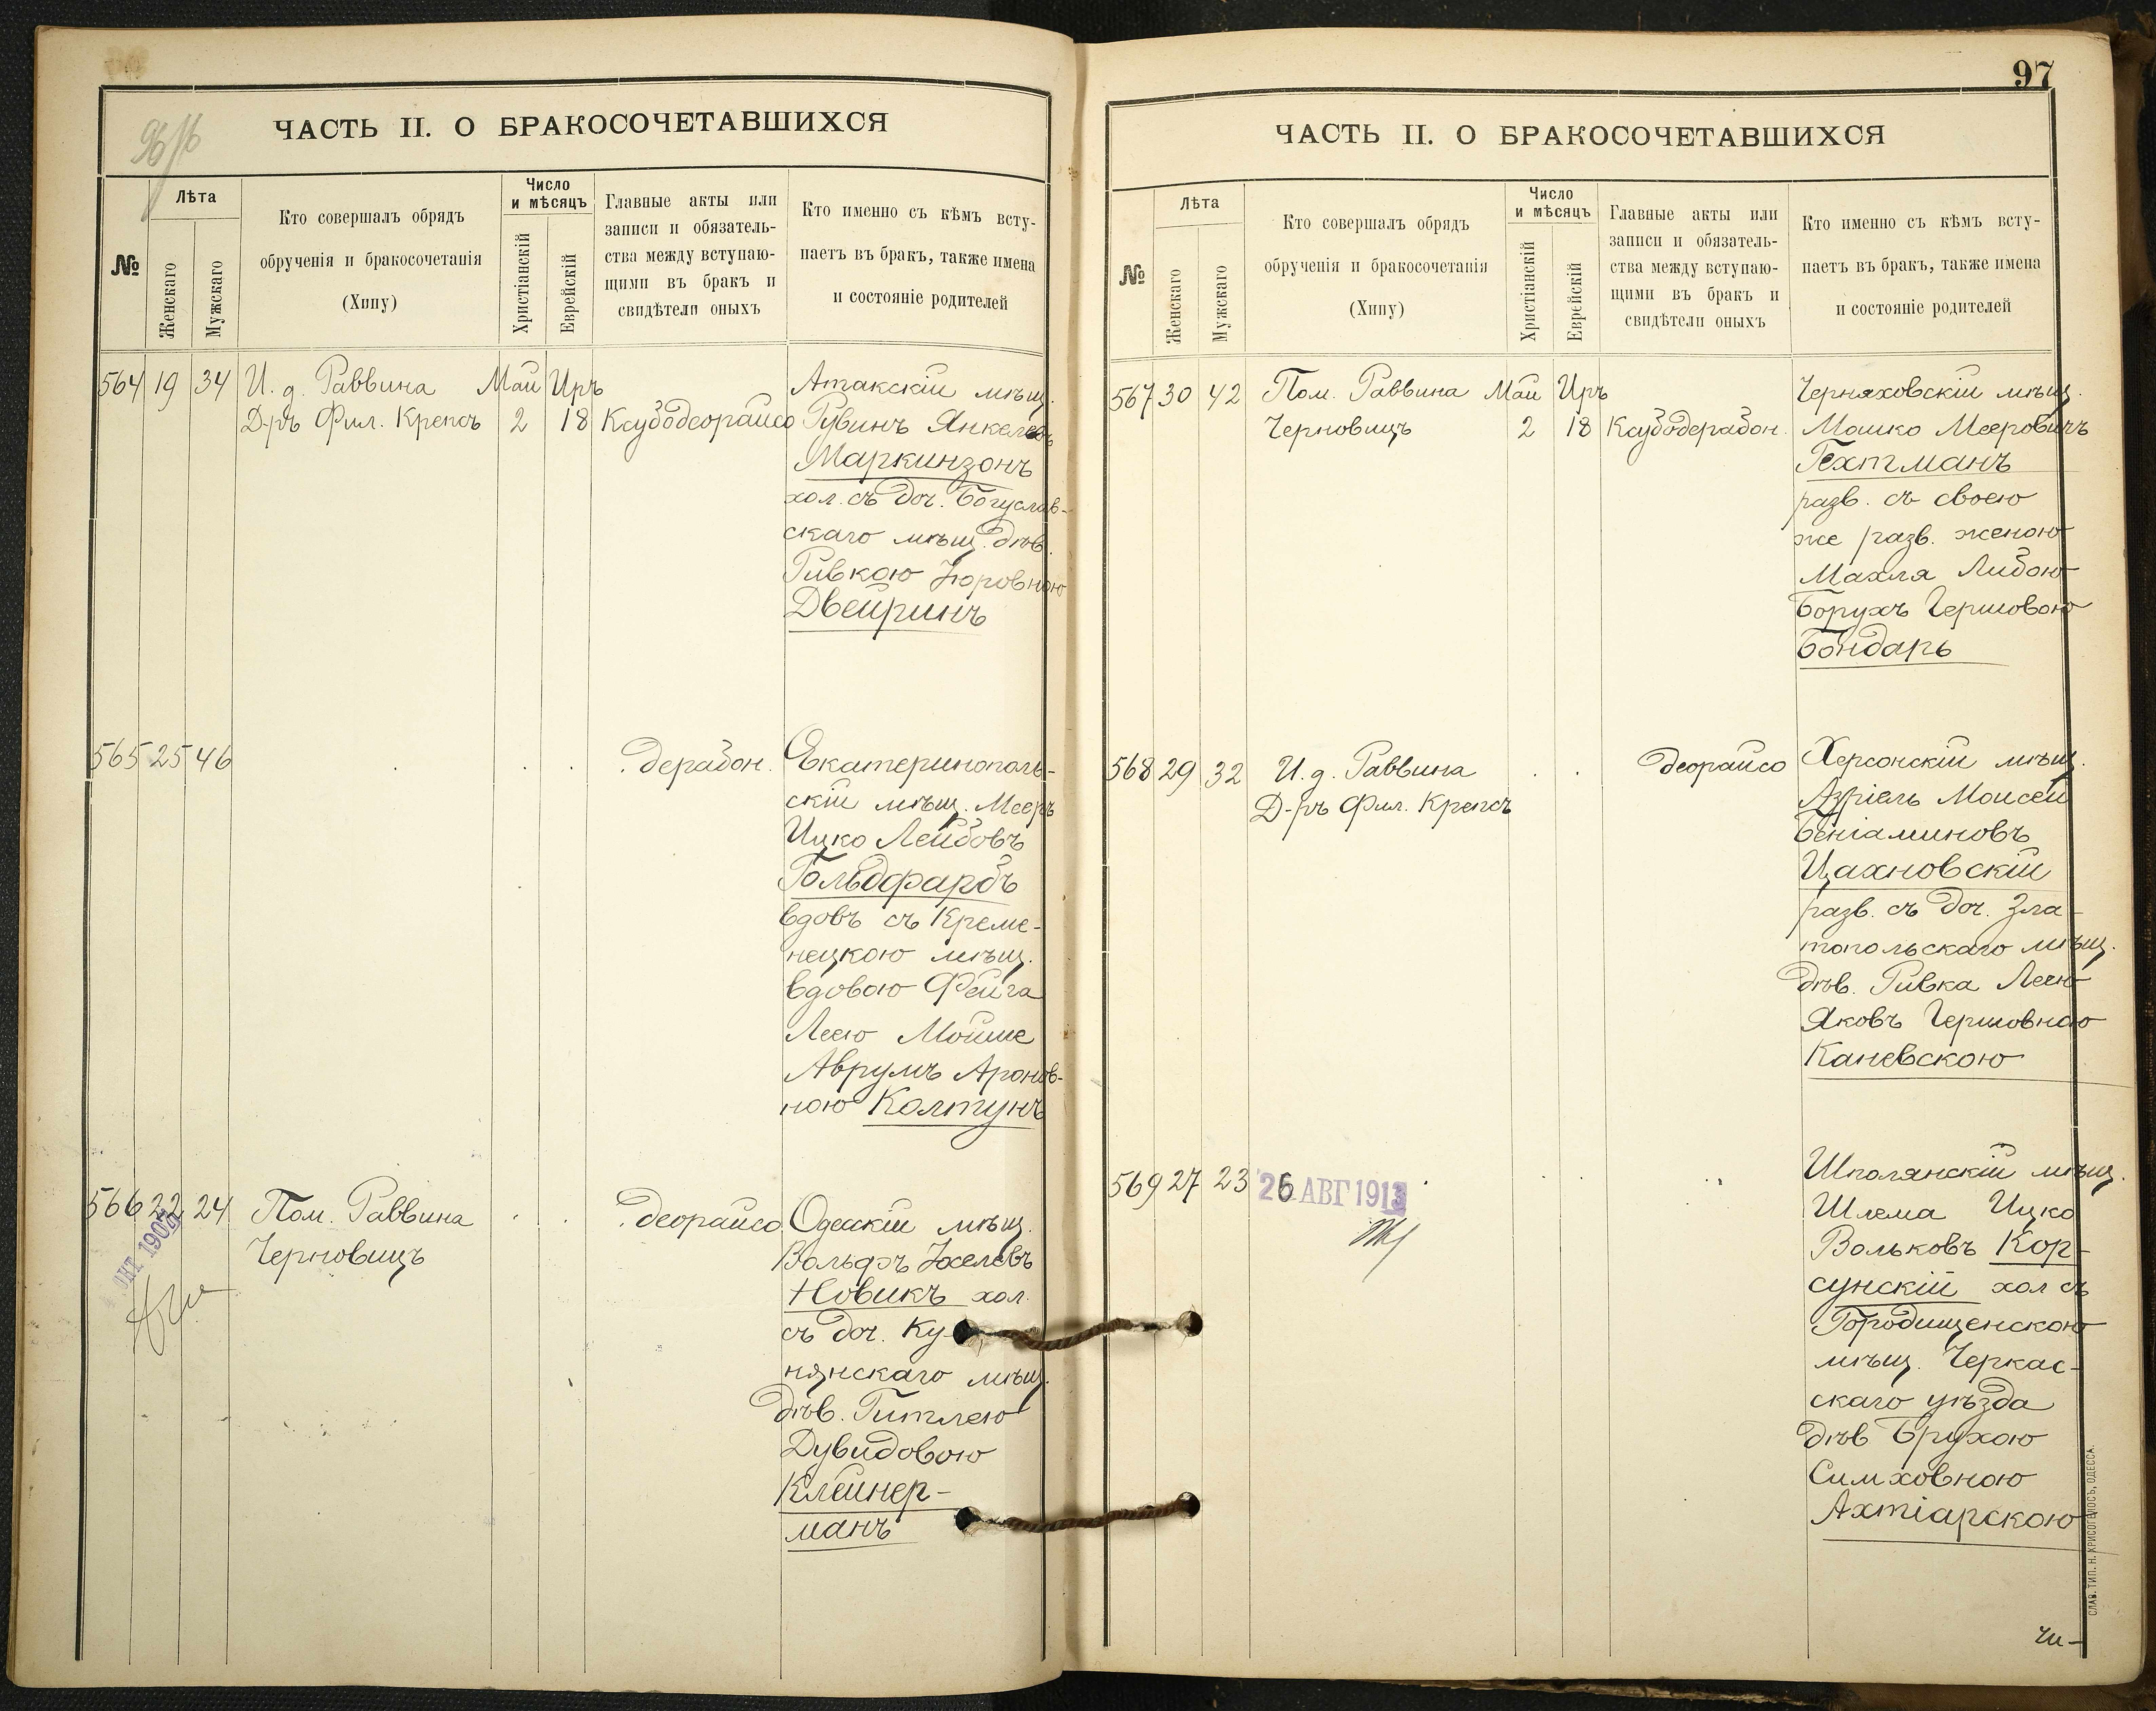 ЧАСТЬ II. О БРАКОСОЧЕТАВШИХСЯ
№
Лѣта
Женскаго
Мужскаго
Кто совершалъ обрядъ
обрученія и бракосочетанія
(Хипу)
Число
и мѣсяцъ
Христіанскій
Еврейскій
Главные акты или
записи и обязатель-
ства между вступаю-
щими въ бракъ и
свидѣтели оныхъ
Кто именно съ кѣмъ всту-
паетъ въ бракъ, также имена
и состояніе родителей
564 19 34 И. д. Раввина Май Иръ
Д-ръ Фил. Крепсъ 2 18 Ксубодеорайсо
Атакскій мѣщ.
Рувинъ Янкелевъ
Маркинзонъ
хол. съ доч. Богуслав-
скаго мѣщ. дѣв.
Ривкою Іюровною
Двейринъ
565 25 46 дерабон.
Екатеринополь-
скій мѣщ. Мееръ
Ицко Лейбовъ
Гольдфарбъ
вдовъ съ Креме-
нецкою мѣщ.
вдовою Фейга
Леею Мойше
Аврумъ Аронов-
ною Колтунъ
566 22 24 Пом. Раввина деорайсо
Черновицъ
ОКТ 190
Одесскій мѣщ.
Вольфъ Іоселевъ
Новикъ хол.
съ доч. Ку-
нянскаго мѣщ.
дѣв. Гитлею
Дувидовою
Клейнер-
манъ
97
ЧАСТЬ II. О БРАКОСОЧЕТАВШИХСЯ
№
Лѣта
Женскаго
Мужскаго
Кто совершалъ обрядъ
обрученія и бракосочетанія
(Хипу)
Число
и мѣсяцъ
Христіанскій
Еврейскій
Главные акты или
записи и обязатель-
ства между вступаю-
щими въ бракъ и
свидѣтели оныхъ
Кто именно съ кѣмъ всту-
паетъ въ бракъ, также имена
и состояніе родителей
567 30 42 Пом. Раввина Май Иръ
Черновицъ 2 18 Ксубодерабон.
Черняховскій мѣщ.
Мошко Мееровичъ
Гехтманъ
разв. съ своею
же разв. женою
Махля Либою
Борухъ Гершовою
Бондарь
568 29 32 И. д. Раввина деорайсо
Д-ръ Фил. Крепсъ
Херсонскій мѣщ.
Азріель Моисей
Беніаминовъ
Цахновскій
разв. съ доч. Зла-
топольскаго мѣщ.
дѣв. Ривка Леею
Яковъ Гершовною
Каневскою
569 27 23 26 АВГ 1913
Шполянскій мѣщ.
Шлема Ицко
Вольковъ Кор-
сунскій хол съ
Городищенскою
мѣщ. Черкас-
скаго уѣзда
дѣв Брухою
Симховною
Ахтіарскою
СЛАВ. ТИП. Н. ХРИСОГЕЛОСЪ, ОДЕССА.